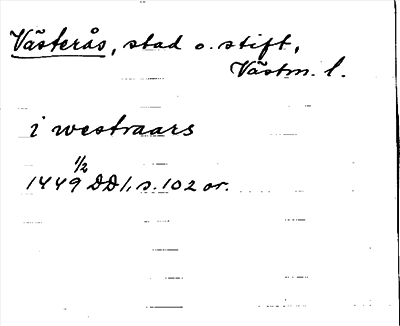 Västerås, stad o. stift,
Västm. l.
i westraars
1449 1/2 DD1, s. 102 or.